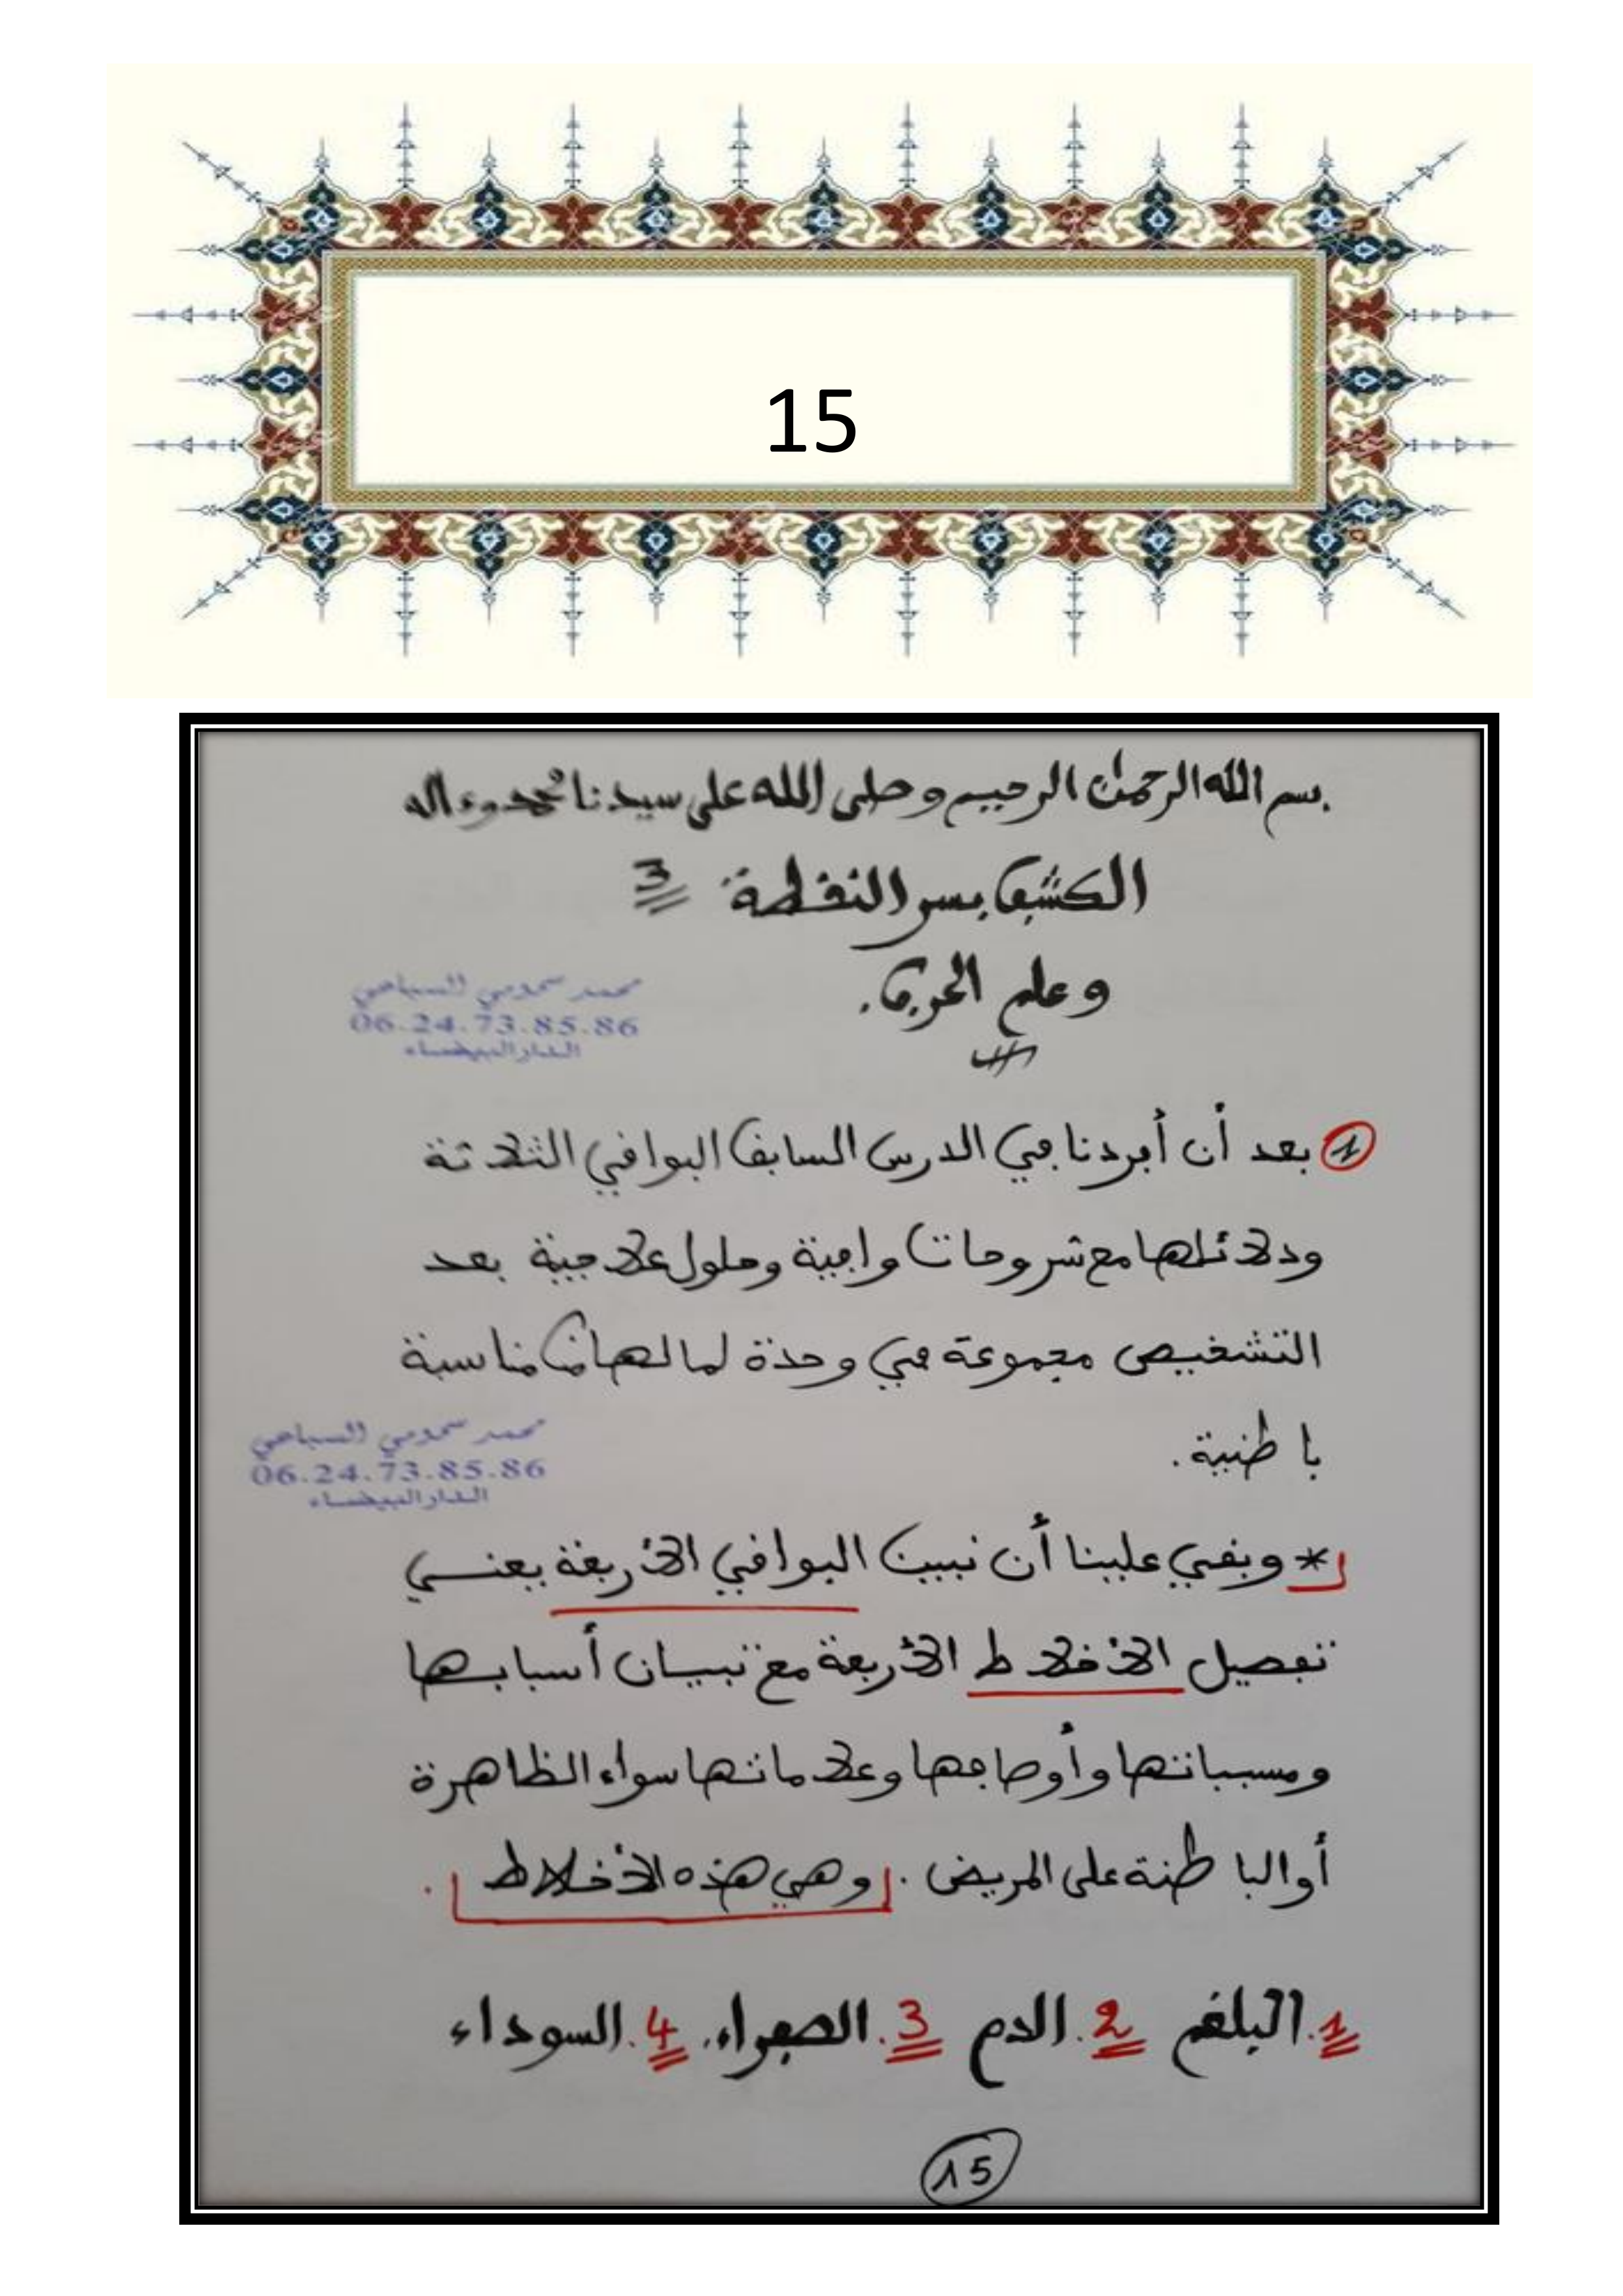 15
بسم الله الرحمان الرحيم وصلى الله على سيدنا محمد وءاله
الكشف بسر النقطة 3
وعلم الحرف.
محمد سحومي السباعي
06.24.73.85.86
الدار البيضاء
1 بعد أن أفردنا في الدرس السابق البواقي الثلاثة
ودلائلها مع شروحات وافية وحلول علاجية بعد
التشخيص مجموعة في وحدة لما لها من مناسبة
باطنية.
محمد سحومي السباعي
06.24.73.85.86
الدار البيضاء
* وبقي علينا أن نبين البواقي الأربعة يعني
تفصيل الأخلاط الأربعة مع تبيان أسبابها
ومسبباتها وأوصافها وعلاماتها سواء الظاهرة
أو الباطنة على المريض. وهي هذه الأخلاط.
1. البلغم 2. الدم 3. الصفراء. 4. السوداء
15